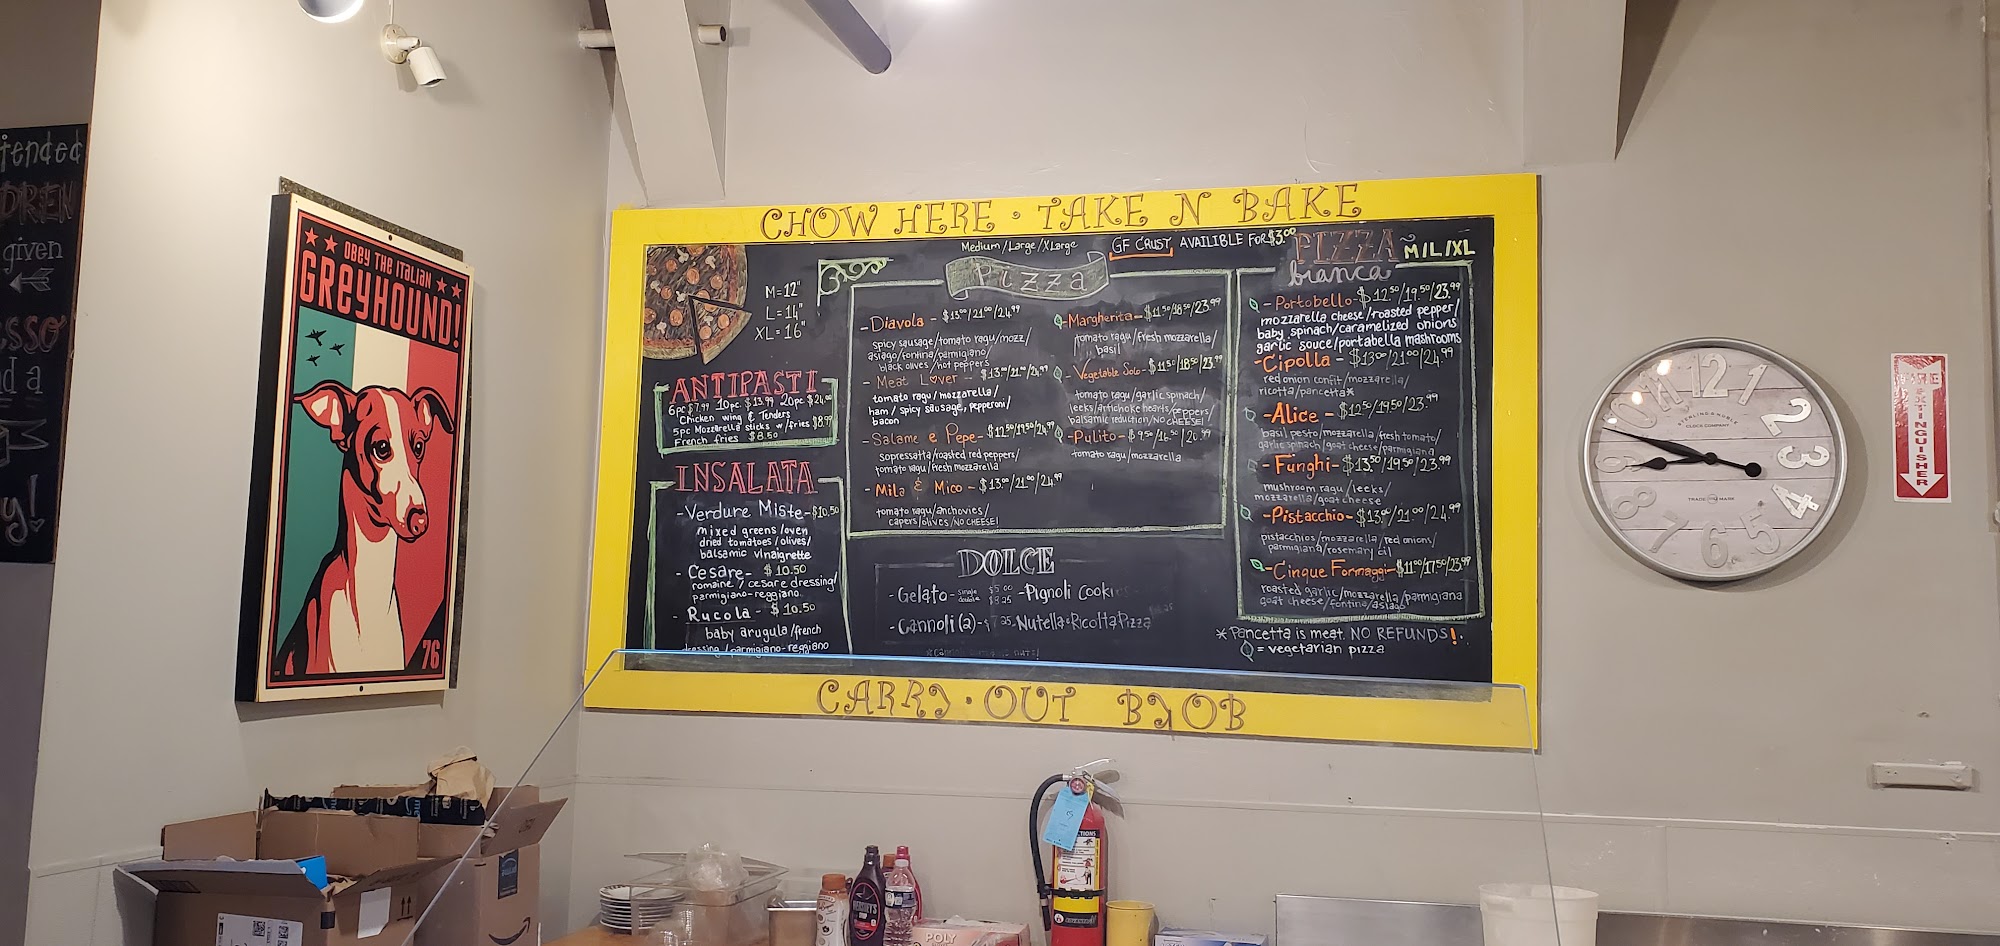 tended
given
OBEY THE ITALIAN
GREYHOUND!
76
CHOW HERE · TAKE N BAKE
Medium/Large/XLarge
GF CRUST AVAILIBLE FOR $3.00
M=12"
L=14"
XL=16"
ANTIPASTI
6pc $7.99 10pc. $13.99 20pc $24.00
Chicken wing & Tenders
5pc Mozzarella sticks w/fries $8.99
French fries $8.50
INSALATA
-Verdure Miste-$10.50
mixed greens/oven
dried tomatoes/olives/
balsamic vinaigrette
- Cesare- $10.50
romaine/cesare dressing/
parmigiano-reggiano
- Rucola - $10.50
baby arugula/french
dressing/parmigiano-reggiano
Pizza
-Diavola - $13.00/21.00/24.99
spicy sausage/tomato ragu/mozz/
asiago/fontina/parmigiano/
black olives/hot peppers
- Meat Lover - $13.00/21.00/24.99
tomato ragu/mozzarella/
ham/spicy sausage, pepperoni/
bacon
-Salame e Pepe-$12.50/19.50/24.99
sopressatta/roasted red peppers/
tomato ragu/fresh mozzarella
- Mila & Mico - $13.00/21.00/24.99
tomato ragu/anchovies/
capers/olives/NO CHEESE!
-Margherita-$11.50/18.50/23.99
tomato ragu/fresh mozzarella/
basil
- Vegetable Solo-$11.50/18.50/23.99
tomato ragu/garlic spinach/
leeks/artichoke hearts/peppers/
balsamic reduction/NO CHEESE!
-Pulito-$9.50/16.50/20.99
tomato ragu/mozzarella
DOLCE
-Gelato- single $5.00
double $8.25
-Pignoli Cookies
-Cannoli(2)-$7.25
-Nutella&Ricotta Pizza
PIZZA M/L/XL
bianca
-Portobello-$12.50/19.50/23.99
mozzarella cheese/roasted pepper/
baby spinach/caramelized onions
garlic souce/portabella mashrooms
-Cipolla - $13.00/21.00/24.99
red onion confit/mozzarella/
ricotta/pancetta*
-Alice - $12.50/19.50/23.99
basil pesto/mozzarella/fresh tomato/
garlic spinach/goat cheese/parmigiana
-Funghi-$13.50/19.50/23.99
mushroom ragu/leeks/
mozzarella/goat cheese
-Pistacchio-$13.00/21.00/24.99
pistacchios/mozzarella/red onions/
parmigiana/rosemary oil
-Cinque Formaggi-$11.00/17.50/23.99
roasted garlic/mozzarella/parmigiana
goat cheese/fontina/asiago
* Pancetta is meat. NO REFUNDS!.
= vegetarian pizza
CARRY·OUT BYOB
12
1
2
3
4
5
6
7
8
9
10
11
CLOCK COMPANY
TRADE MARK
FIRE
EXTINGUISHER
HERSHEY'S
POLY